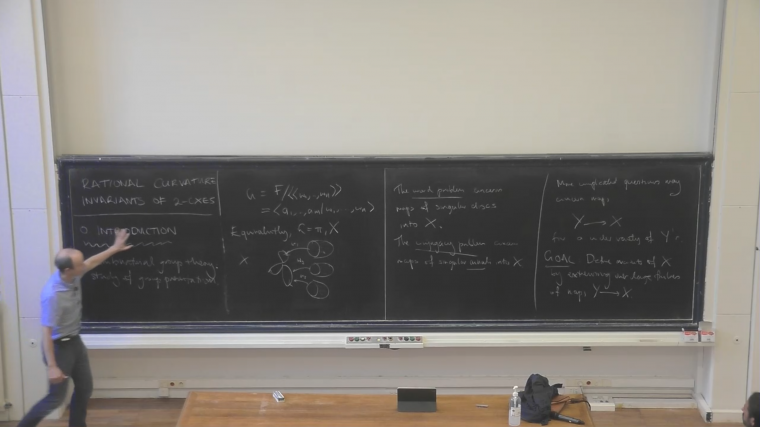 RATIONAL CURVATURE
INVARIANTS OF 2-CXES
0 INTRODUCTION
group theory
study of group presentations
G = F/⟨⟨w₁,..,wₙ⟩⟩
= ⟨a₁,..,aₘ | w₁,..,wₙ⟩
Equivalently, G = π₁ X
X
The word problem concerns
maps of singular discs
into X.
The conjugacy problem concerns
maps of singular annuli into X
More complicated questions may
concern maps
Y → X
for a wider variety of Y.
GOAL Define invariants of X
by extremising over large
of maps Y → X